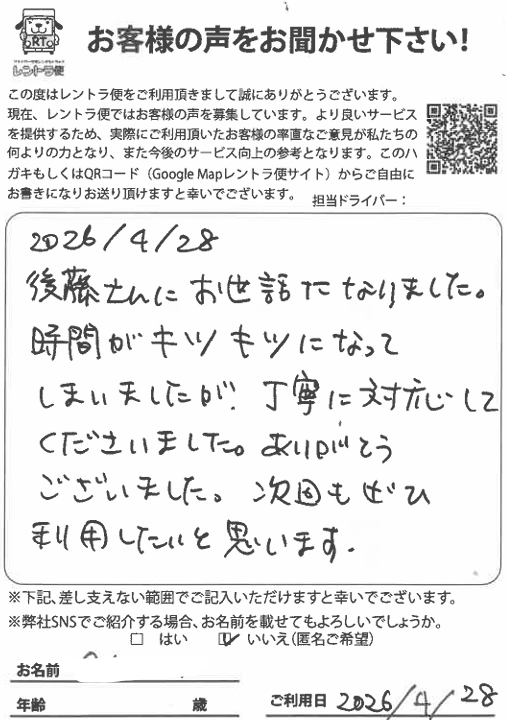 RT
レントラ便
お客様の声をお聞かせ下さい!
この度はレントラ便をご利用頂きまして誠にありがとうございます。
現在、レントラ便ではお客様の声を募集しています。より良いサービス
を提供するため、実際にご利用頂いたお客様の率直なご意見が私たちの
何よりの力となり、また今後のサービス向上の参考となります。このハ
ガキもしくはQRコード（Google Mapレントラ便サイト）からご自由に
お書きになりお送り頂けますと幸いでございます。
担当ドライバー：
2026/4/28
後藤さんにお世話になりました。
時間がキツキツになって
しまいましたが、丁寧に対応して
くださいました。ありがとう
ございました。次回もぜひ
利用したいと思います。
※下記、差し支えない範囲でご記入いただけますと幸いでございます。
※弊社SNSでご紹介する場合、お名前を載せてもよろしいでしょうか。
□ はい ☑ いいえ(匿名ご希望)
お名前
年齢 歳
ご利用日 2026/4/28